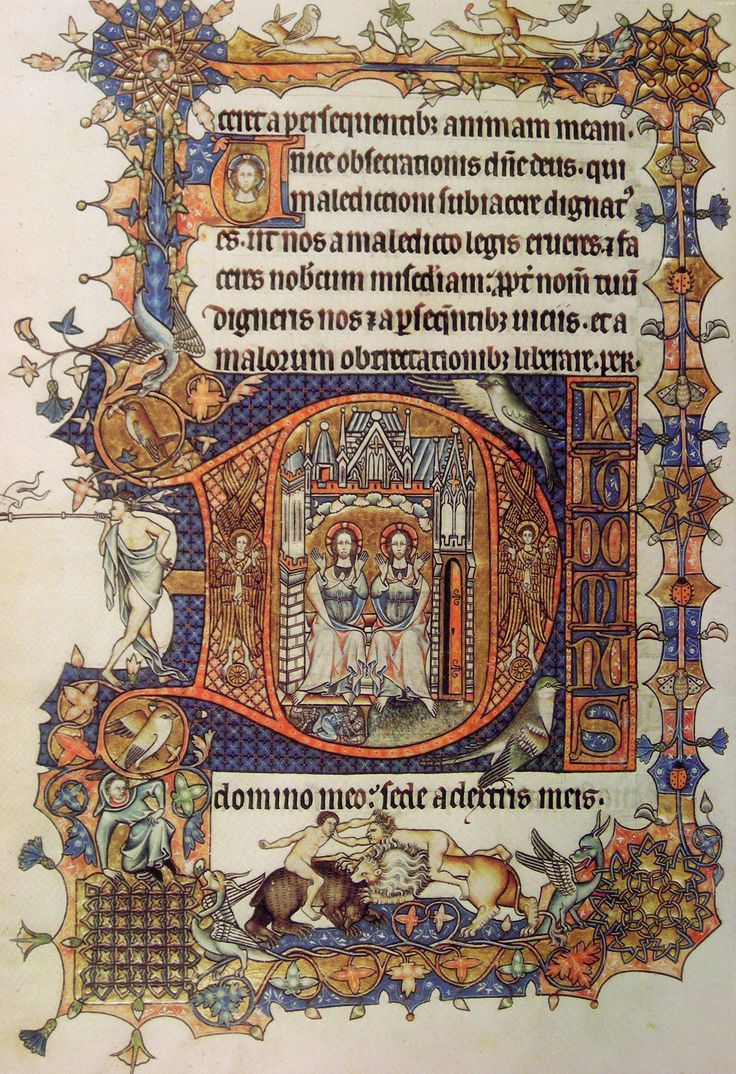 ceret a persequentibꝫ animam meam.
Unice obsecrationis dn̄e deus. qui
maledictioni subiacere dignatꝰ
es. ut nos a maledicto legis erueres. ⁊ fa
ceres nob̄cum misc̄diam: ꝓpt̄ nom̄ tuū
digneris nos ⁊ a p̄seqn̄tibꝫ uiciis. et a
malorum obtrectationibꝫ liberare. per.
D
IX
IT
DO
MI
NU
S
domino meo: sede a dextris meis.